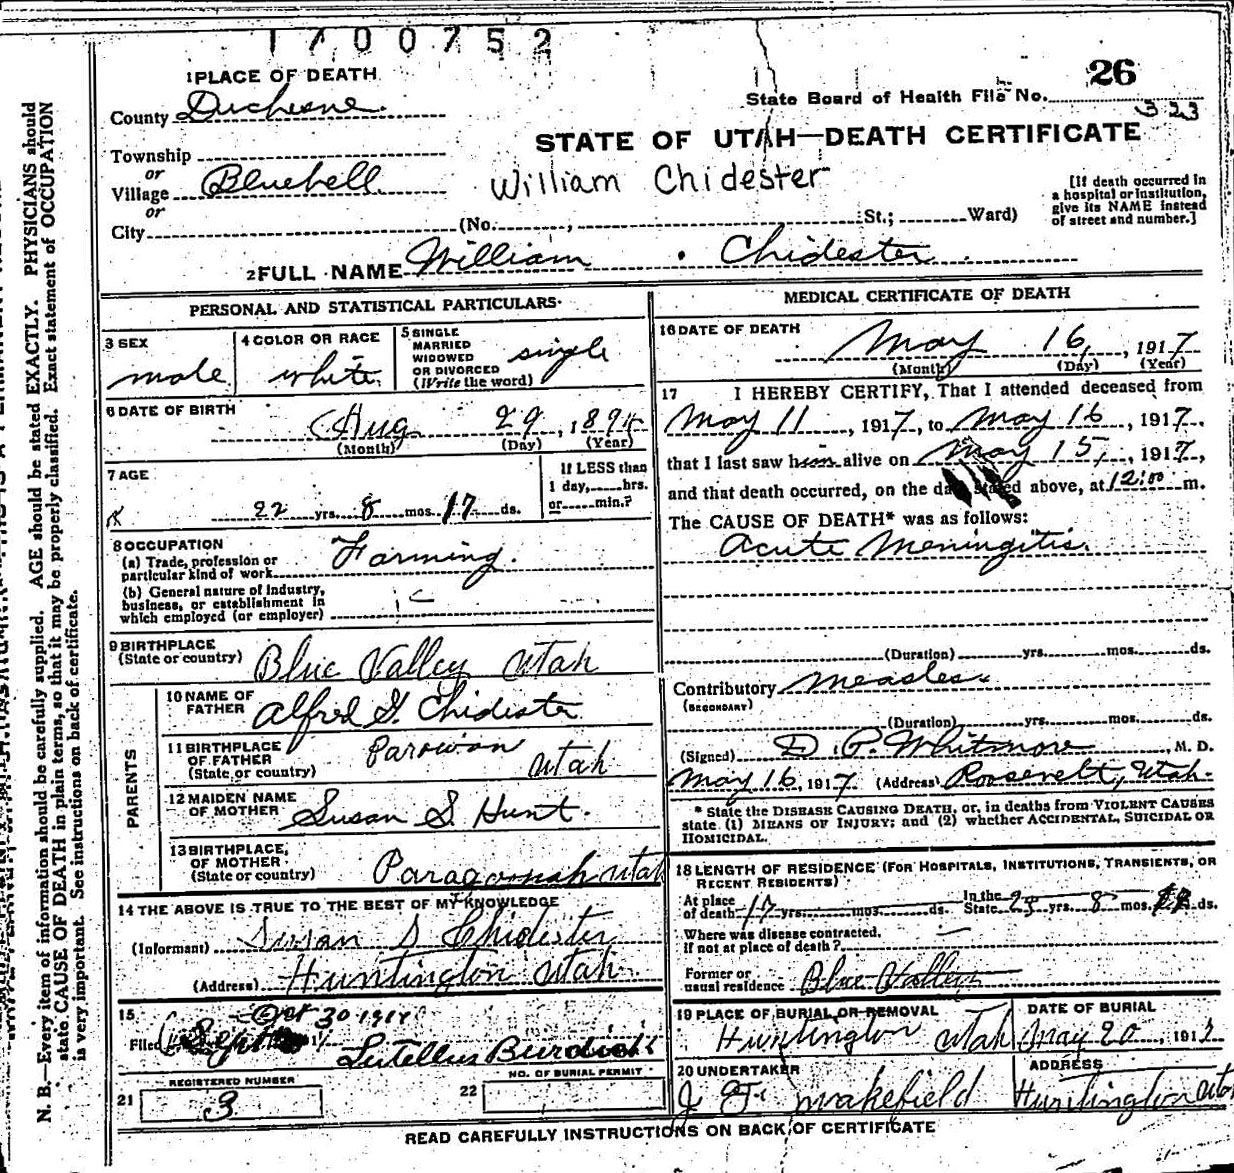 1700752
1 PLACE OF DEATH
26
State Board of Health File No. 323
County Duchesne.
STATE OF UTAH—DEATH CERTIFICATE
Township
or
Village Bluebell.
William Chidester
[If death occurred in
a hospital or institution,
give its NAME instead
of street and number.]
or
City (No. , St.; Ward)
2 FULL NAME William Chidester.
PERSONAL AND STATISTICAL PARTICULARS
3 SEX
male
4 COLOR OR RACE
white
5 SINGLE
MARRIED
WIDOWED
OR DIVORCED
(Write the word)
single
6 DATE OF BIRTH
Aug 29, 1894
(Month) (Day) (Year)
7 AGE
22 yrs. 8 mos. 17 ds.
If LESS than
1 day, hrs.
or min.?
8 OCCUPATION
(a) Trade, profession or
particular kind of work Farming.
(b) General nature of Industry,
business, or establishment in
which employed (or employer)
9 BIRTHPLACE
(State or country) Blue Valley Utah
PARENTS
10 NAME OF
FATHER Alfred G. Chidester
11 BIRTHPLACE
OF FATHER
(State or country) Parowan Utah
12 MAIDEN NAME
OF MOTHER Susan S. Hunt.
13 BIRTHPLACE
OF MOTHER
(State or country) Paragoonah Utah
14 THE ABOVE IS TRUE TO THE BEST OF MY KNOWLEDGE
(Informant) Susan S Chidester
(Address) Huntington Utah
15
Oct 30 1917
Filed Sept 191 Lutellus Burdick
21 REGISTERED NUMBER
3
22 NO. OF BURIAL PERMIT
MEDICAL CERTIFICATE OF DEATH
16 DATE OF DEATH
May 16, 1917
(Month) (Day) (Year)
17 I HEREBY CERTIFY, That I attended deceased from
May 11, 1917, to May 16, 1917,
that I last saw him alive on May 15, 1917,
and that death occurred, on the date stated above, at 12:00 m.
The CAUSE OF DEATH* was as follows:
Acute Meningitis.
(Duration) yrs. mos. ds.
Contributory Measles
(SECONDARY)
(Duration) yrs. mos. ds.
(Signed) D. P. Whitmore, M. D.
May 16, 1917 (Address) Roosevelt, Utah.
* State the DISEASE CAUSING DEATH, or, in deaths from VIOLENT CAUSES
state (1) MEANS OF INJURY; and (2) whether ACCIDENTAL, SUICIDAL OR
HOMICIDAL.
18 LENGTH OF RESIDENCE (FOR HOSPITALS, INSTITUTIONS, TRANSIENTS, OR
RECENT RESIDENTS)
At place
of death 17 yrs. mos. ds. In the
State yrs. 8 mos. ds.
Where was disease contracted,
if not at place of death?
Former or
usual residence Blue Valley
19 PLACE OF BURIAL OR REMOVAL
Huntington Utah
DATE OF BURIAL
May 20, 1917
20 UNDERTAKER
Wakefield
ADDRESS
Huntington Utah
READ CAREFULLY INSTRUCTIONS ON BACK OF CERTIFICATE
N. B.—Every item of information should be carefully supplied. AGE should be stated EXACTLY. PHYSICIANS should
state CAUSE OF DEATH in plain terms, so that it may be properly classified. Exact statement of OCCUPATION
is very important. See instructions on back of certificate.